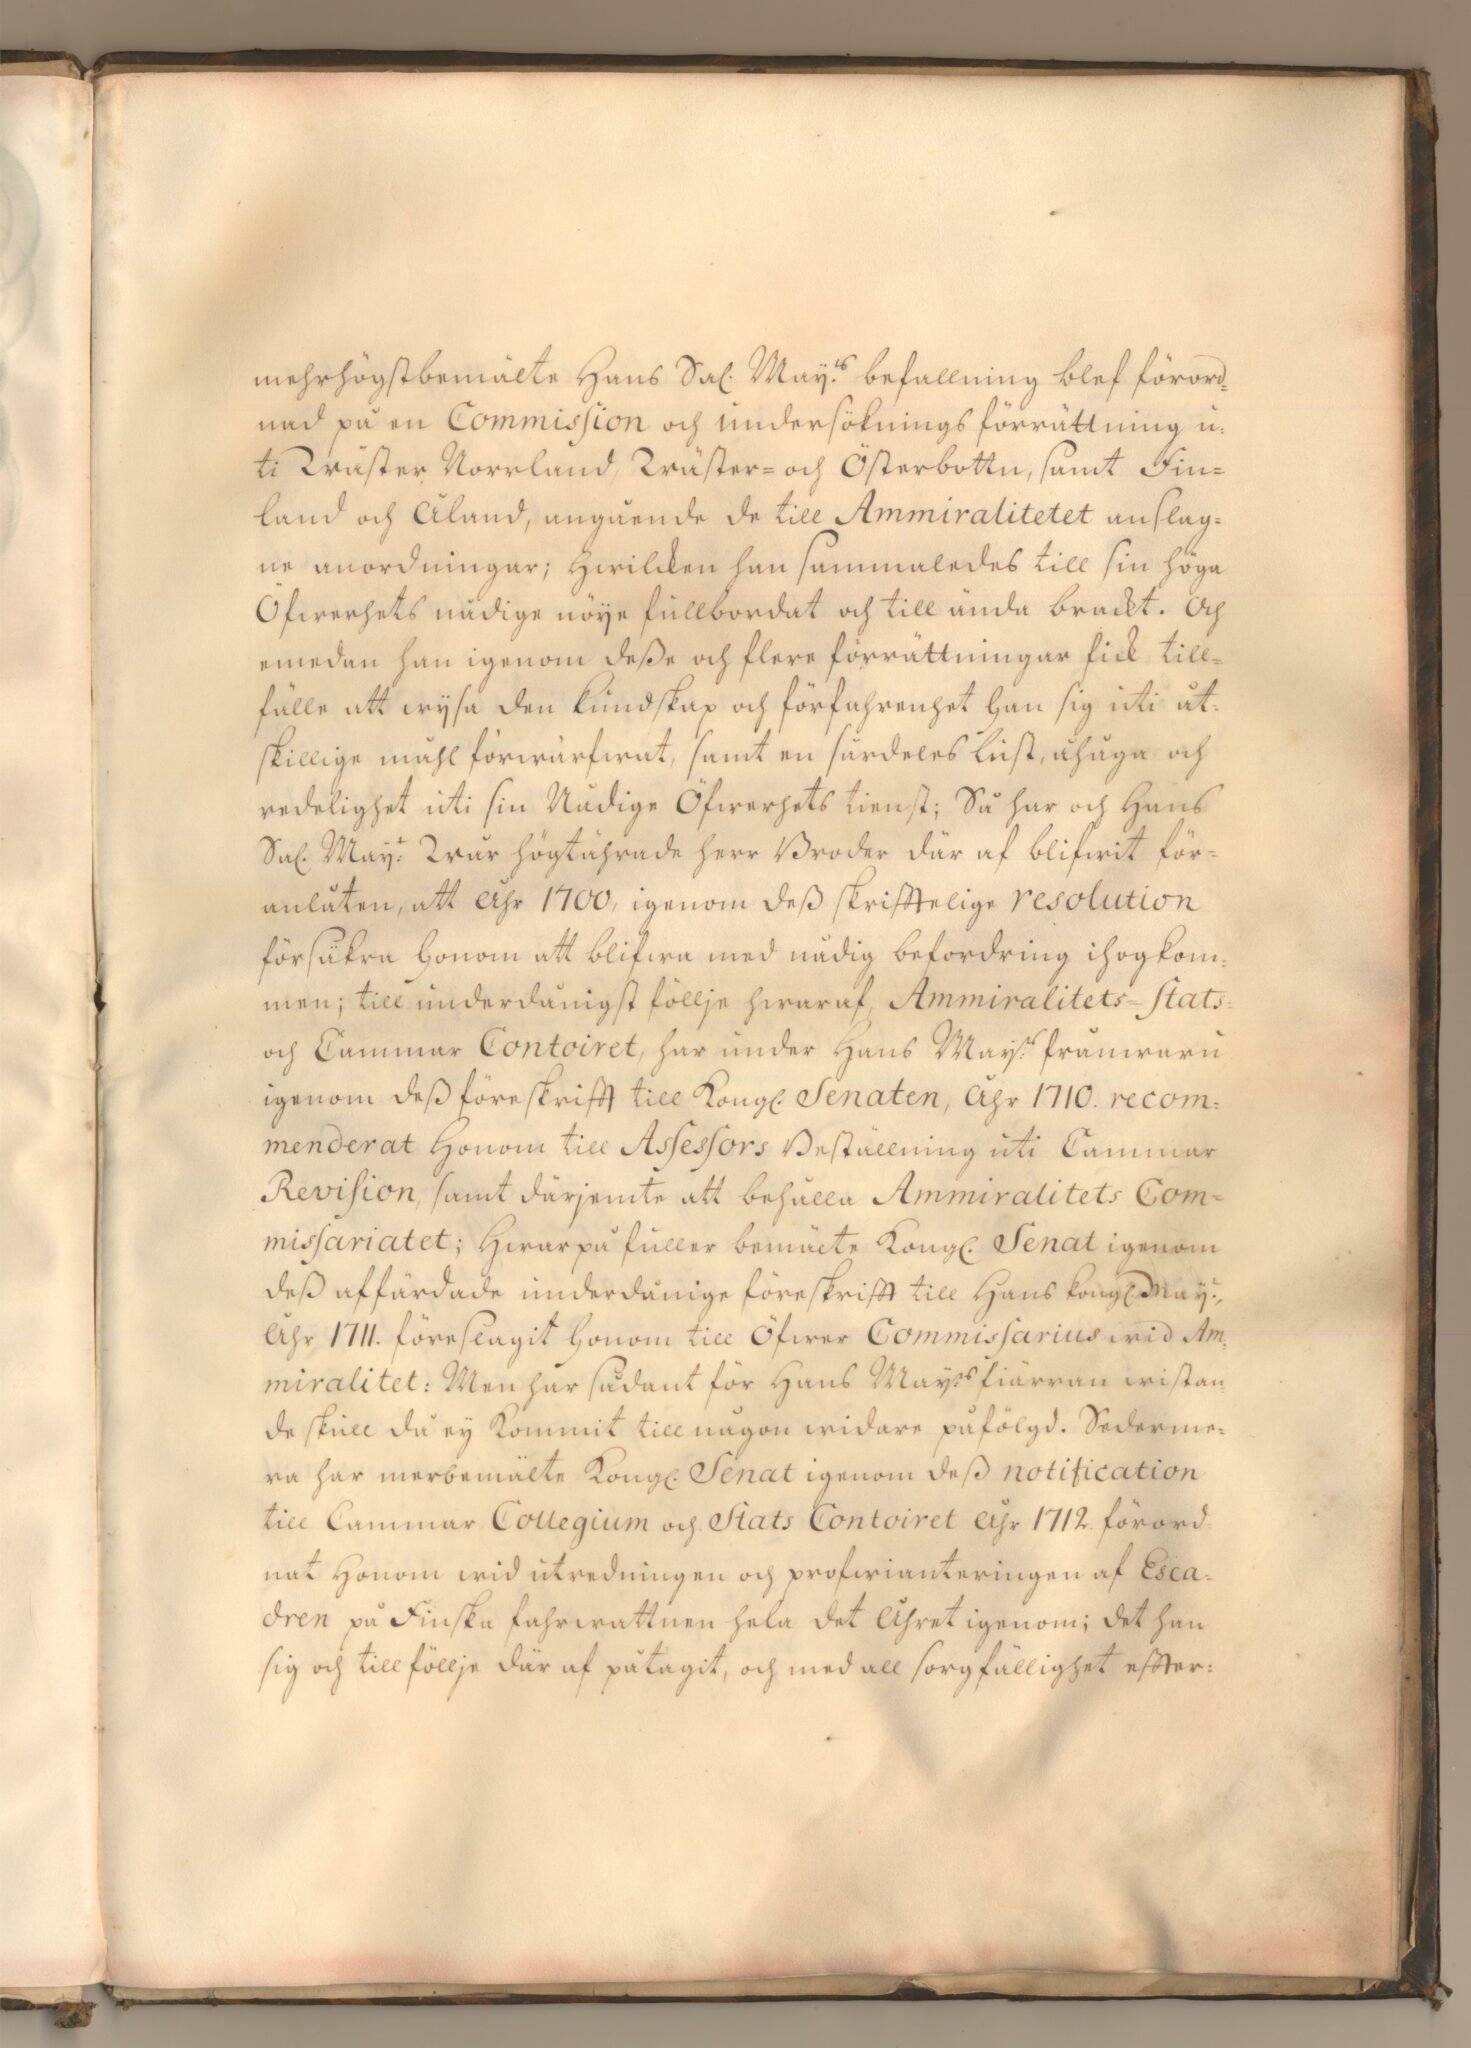 mehrhögstbemälte Hans Sal. May:ts befallning blef förord=
nad på en Commission och undersöknings förrättning u=
ti Wäster Norrland, Wäster= och Österbottn, samt Fin=
land och Åland, angående de till Ammiralitetet anslag=
ne anordningar; Hwilcken han sammaledes till sin höga
Öfwerhets nådige nöye fullbordat och till ända brackt. Och
emedan han igenom deße och flere förrättningar fick till=
fälle att wysa den kundskap och förfahrenhet han sig uti åt=
skillige måhl förwärfwat, samt en särdeles lust, åhuga och
redelighet uti sin Nådige Öfwerhets tienst; Så har och Hans
Sal. May:t Wår högtährade herr Broder där af blifwit för=
anlåten, att Åhr 1700, igenom deß skrifftelige resolution
försäkra honom att blifwa med nådig befordring ihogkom=
men; till underdånigst föllje hwaraf, Ammiralitets= Stats=
och Cammar Contoiret, har under Hans May:ts frånwaru
igenom deß föreskrifft till Kongl. Senaten, Åhr 1710. recom=
menderat Honom till Assessors Beställning uti Cammar
Revision, samt därjemte att behålla Ammiralitets Com=
missariatet; Hwarpå fuller bemälte Kongl. Senat igenom
deß affärdade underdånige föreskrifft till Hans kongl May:t,
Åhr 1711. föreslagit honom till Öfwer Commissarius wid Am=
miralitet: Men har sådant för Hans May:ts fiärran wistan=
de skull då ey kommit till någon widare påfölgd. Sederme=
ra har merbemälte Kongl. Senat igenom deß notification
till Cammar Collegium och Stats Contoiret Åhr 1712. förord=
nat Honom wid utredningen och profwianteringen af Esca=
dren på Finska fahrwattnen hela det Åhret igenom; det han
sig och till föllje där af påtagit, och med all sorgfällighet effter=